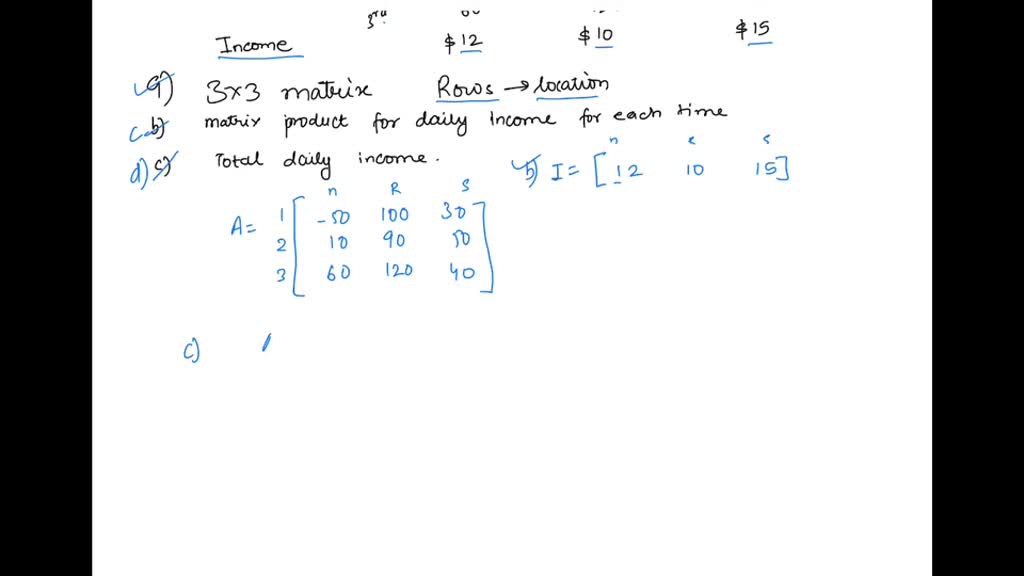 3rd
Income $12 $10 $15
a) 3×3 matrix Rows → location
c b) matrix product for daily income for each time
d) c) Total daily income.
n R S
b) I = [12 10 15]
n R S
A = 1 [-50 100 30]
2 [10 90 50]
3 [60 120 40]
c)